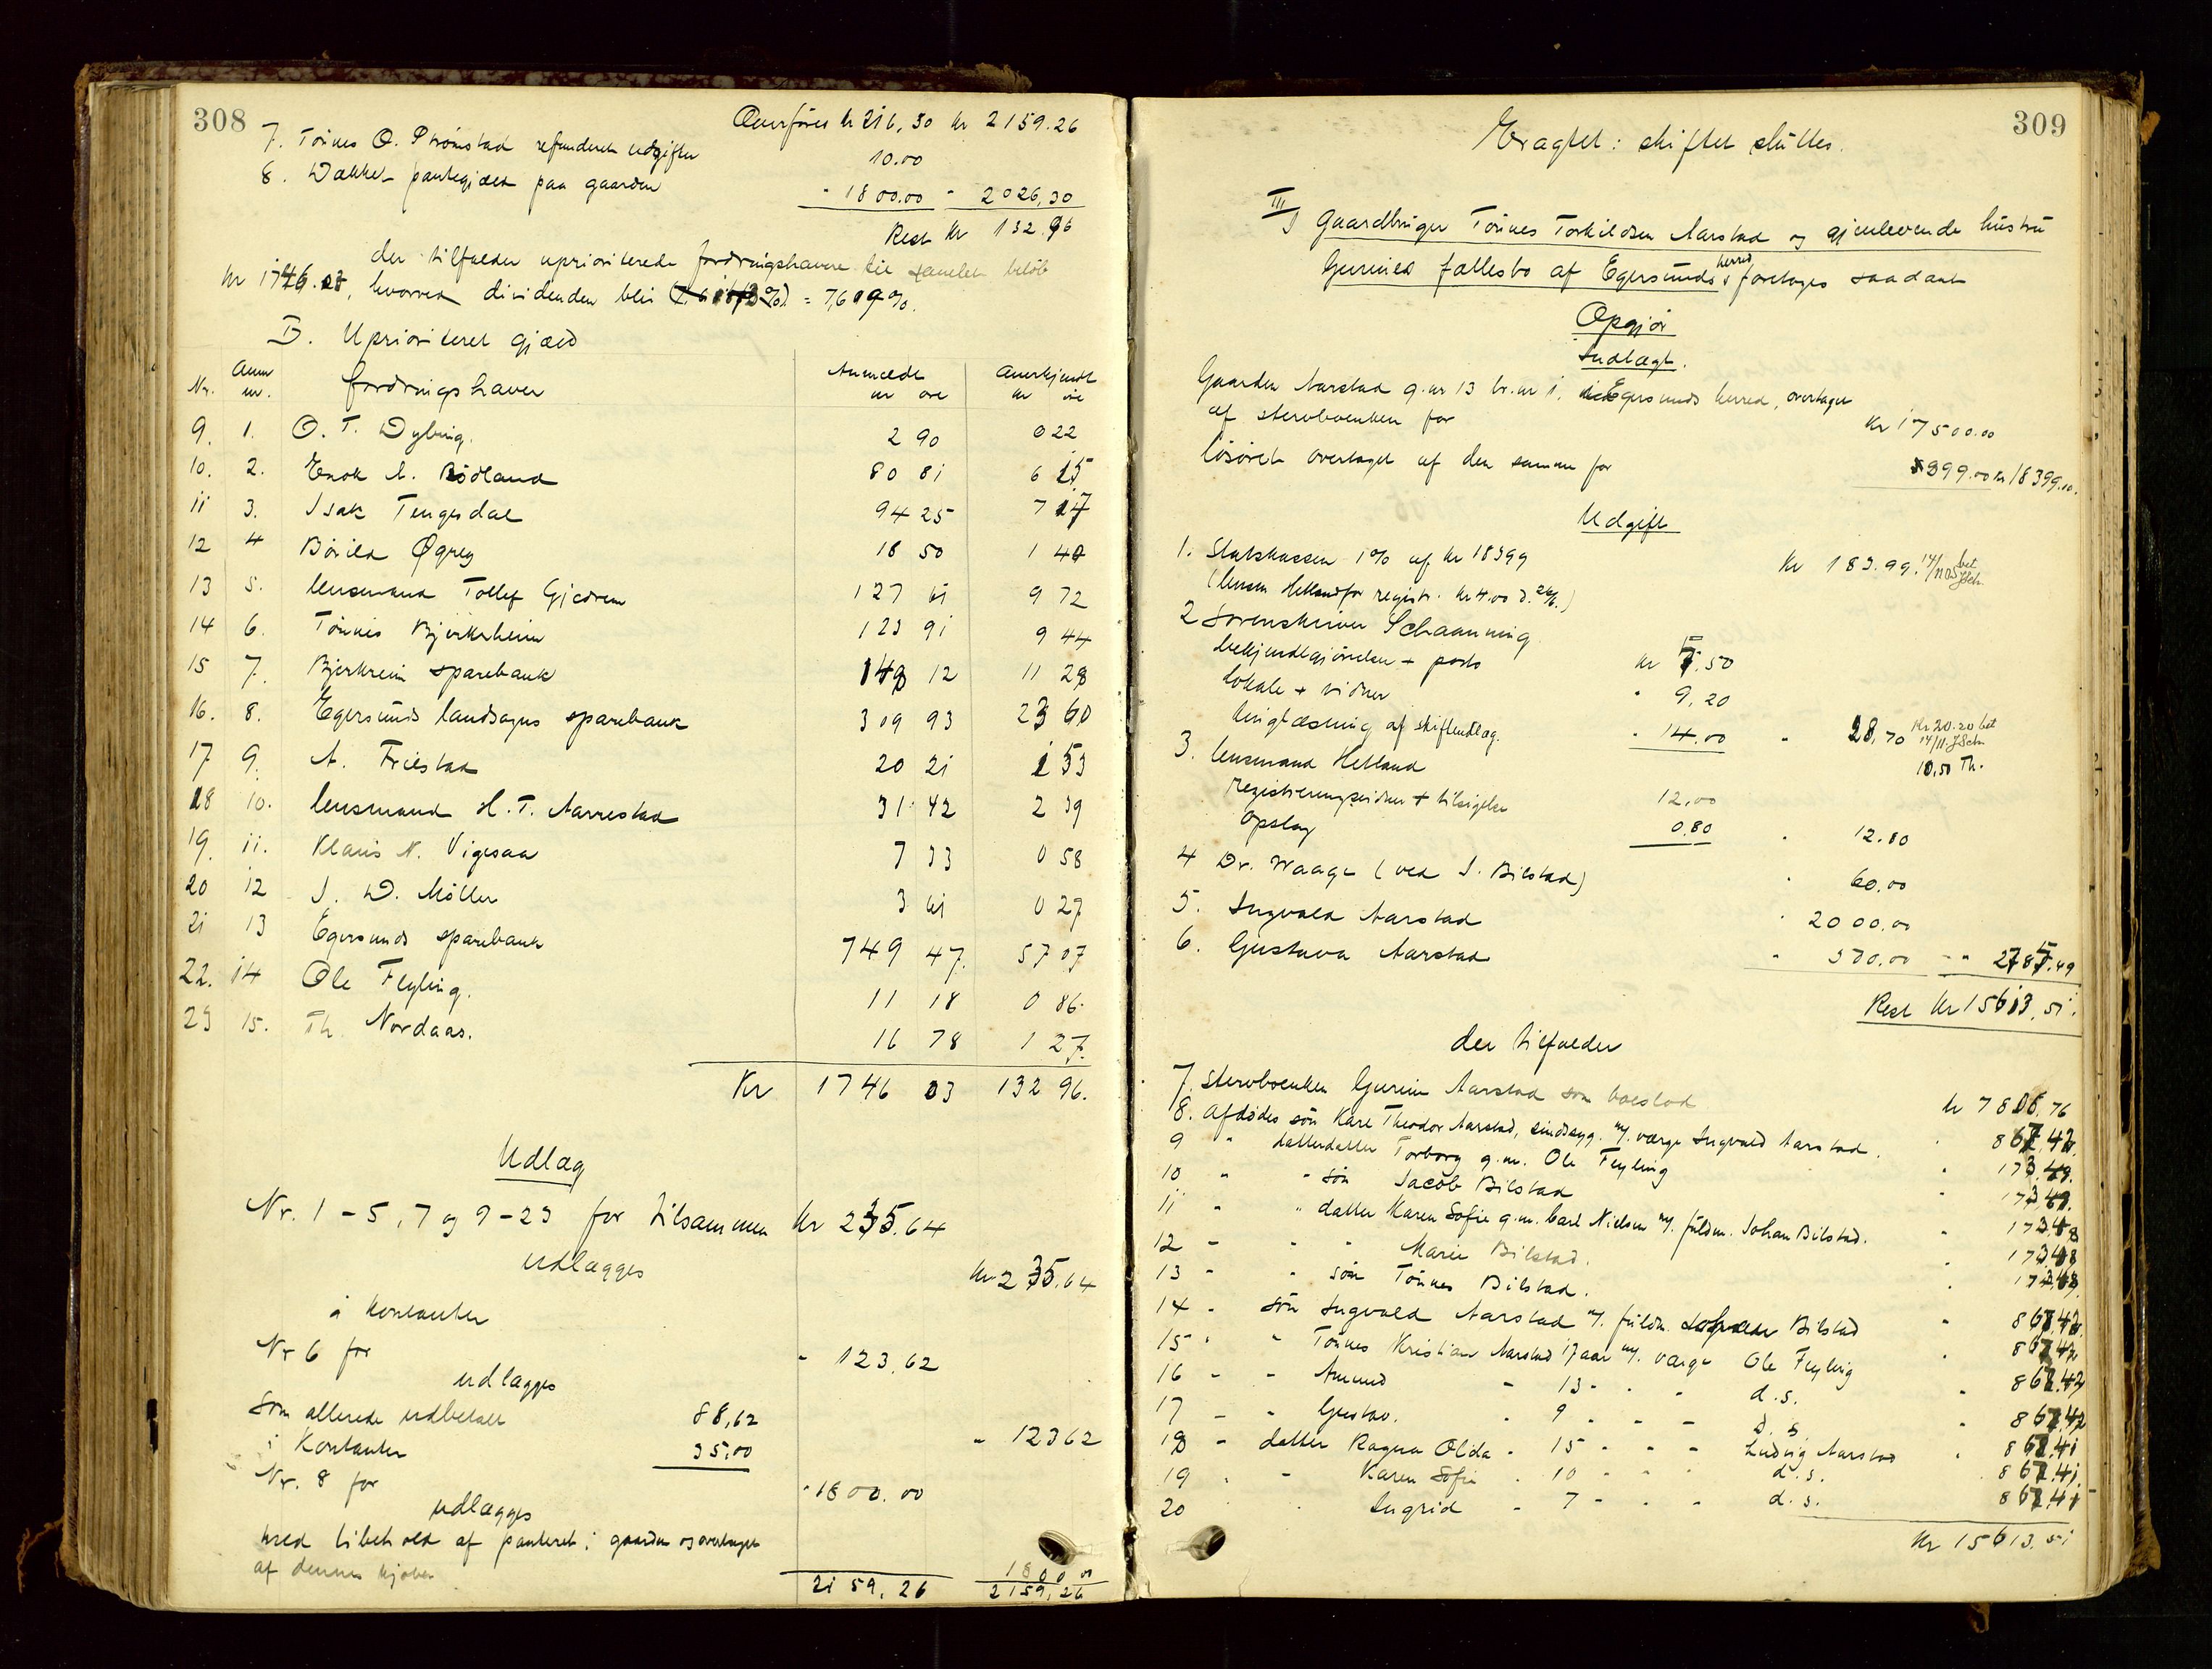 308
Overføres kr 216,30 kr 2159.26
7. Tönnes O. Strömstad refunderet udgifter 10.00
8. Dækket pantegjæld paa gaarden " 1800.00 " 2026,30
Rest kr 132.96
der tilfalder uprioriterede fordringshavere til samlet beløb
kr 1746.03, hvorved dividenden blir = 7,609%.
D. Uprioriteret gjæld
Nr. Anm nr. fordringshaver Anmeldt kr øre Anerkjendt kr øre
9. 1. O. T. Dybing. 2 90 0 22
10. 2. Enok A. Bödland 80 81 6 15
11 3. Isak Tengesdal 94 25 7 17
12 4 Börild Øgrey 18 50 1 40
13 5. lensmand Tollef Gjedrem 127 61 9 72
14 6. Tönnes Bjerkreim 123 91 9 44
15 7. Bjerkreim sparebank 148 12 11 28
16. 8. Egersunds landsogns sparebank 309 93 23 60
17 9. A. Friestad 20 21 1 53
18 10. lensmand H. T. Aarrestad 31 42 2 39
19. 11. Klaus N. Vigesaa 7 33 0 58
20 12 J. D. Möller 3 61 0 27
21 13 Egersunds sparebank 749 47. 57 07
22. 14 Ole Feyling. 11 18 0 86.
23 15. Th. Nordaas. 16 78 1 27.
Kr 1746 03 132 96.
Udlæg
Nr. 1-5, 7 og 9-23 for tilsammen kr 235.64
udlægges
i kontanter kr 235.64
Nr 6 for " 123.62
udlægges
som allerede udbetalt 88,62
i kontanter 35,00 " 123 62
Nr. 8 for " 1800.00
udlægges
med tibehold af panteret i gaarden og overtaget
af dennes kjøber 1800 00
2159,26 2159,26
309
Eragtet: skiftet sluttes.
III I Gaardbruger Tönnes Torkildsen Aarstad og gjenlevende hustru
Gurines fællesbo af Egersunds herred foretoges saadant
Opgjör
Indtægt.
Gaarden Aarstad g.nr 13 br.nr 1, Egersunds herred, overtages
af stervboenken for kr 17500.00
lösöret overtaget af den samme for " 899.00 kr 18399.00.
Udgift
1. Statskassen 1% af kr 18399 kr 183.99. 14/11 05 bet JSch.
(lensm Hetland for registr. kr 4.00 d. 26/6.)
2 Sorenskriver Schaanning
bekjendtgjörelser + porto kr 5.50
lokale + vidner " 9,20
tinglæsning af skifteudlæg. " 14.00 " 28,70 kr 20.20 bet 14/11. JSch.
10,50 Th.
3. lensmand Hetland
registreringsvidner + tilsigelse 12,00
opslag 0.80 " 12.80
4 Dr. Waage (ved J. Bilstad) " 60.00
5. Ingvald Aarstad " 2000.00
6. Gustava Aarstad " 500.00 " " 2785.49
Rest kr 15613.51.
der tilfalder
7. stervboenken Gurine Aarstad som boeslod kr 7806.76
8. Afdödes sön Karl Theodor Aarstad, sindssyg. v/. værge Ingvald Aarstad. " 867.42.
9 " datterdatter Torborg g.m. Ole Feyling " 173.49.
10 " " sön Jacob Bilstad " 173.49.
11 " " datter Karen Sofie g.m. Carl Nielsen v/. fuldm. Johan Bilstad. " 173.48
12 " " " Marie Bilstad. " 173.48
13 " " sön Tönnes Bilstad. " 173.48.
14 " sön Ingvald Aarstad v/. fuldm. Bilstad " 867.42.
15 " " Tönnes Kristian Aarstad 17 aar v/. værge Ole Feyling " 867.42
16 " " Ammed " 13 " " " d.s. " 867.42
17 " " Gustav. " 9 " " " d.s. " 867.42
18 " datter Ragna Olda " 15 " " " Ludvig Aarstad " 867.41
19 " " Karen Sofie " 10 " " " d.s. " 867.41.
20 " " Ingrid " 7 " " " d.s. 867.41
kr 15613.51